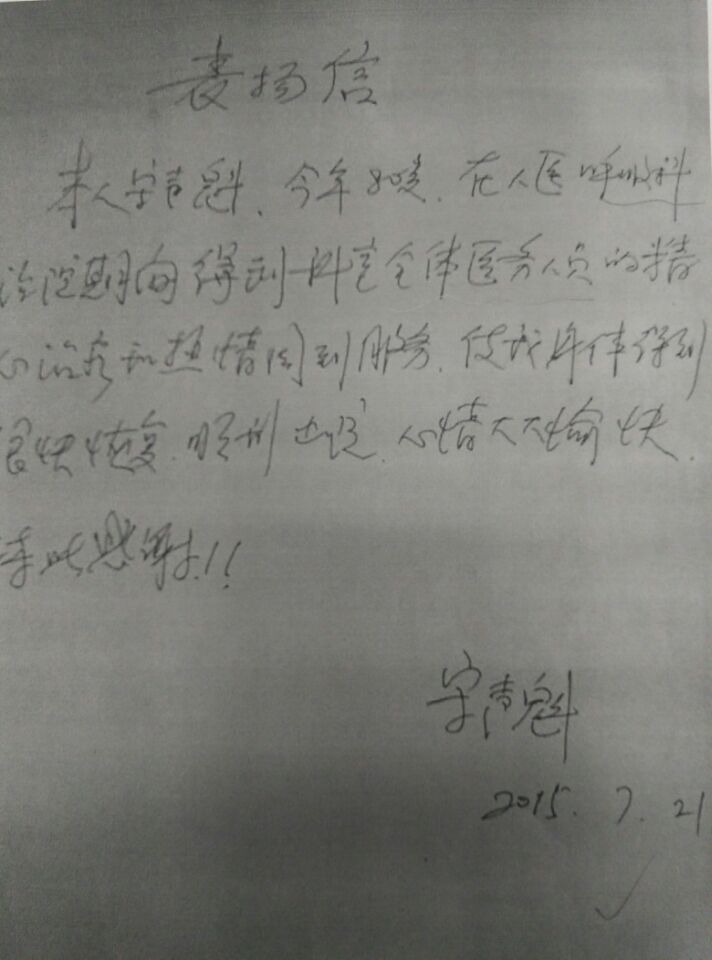 表扬信
本人宋声魁、今年80岁、在人医呼吸科
治院期间得到科室全体医务人员的精
心治疗和热情周到服务、使我身体得到
很快恢复、顺利出院、心情大大愉快、
在此感谢!!
宋声魁
2015.7.21